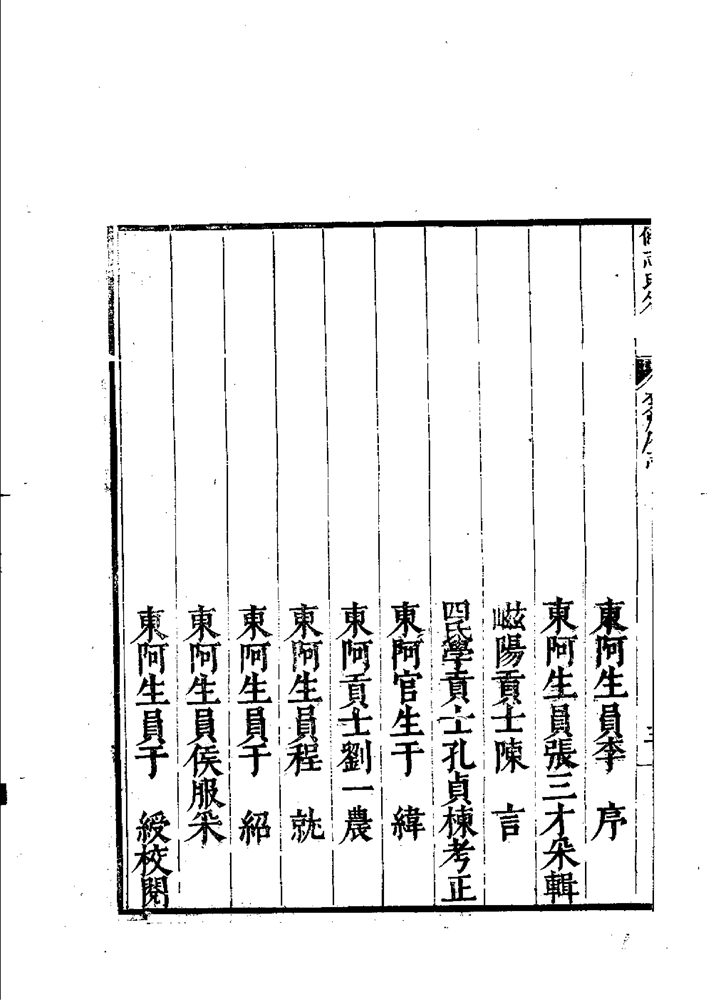 東阿生員李 序
東阿生員張三才采輯
嵫陽貢士陳 言
四氏學貢士孔貞棟考正
東阿官生于 緯
東阿貢士劉一農
東阿生員程 就
東阿生員于 紹
東阿生員侯服采
東阿生員于 綬校閱